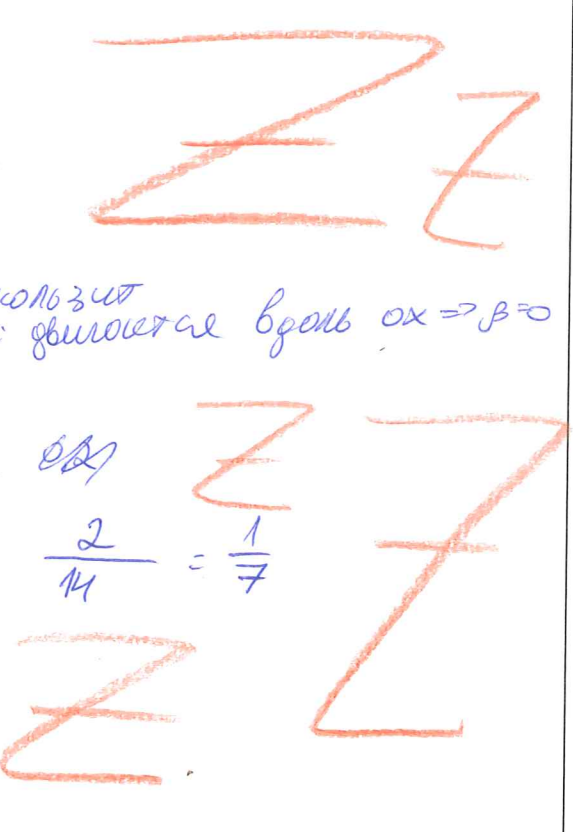 Z Z
скользит
: двигается вдоль ox => β=0
Z Z
2/14 = 1/7
Z